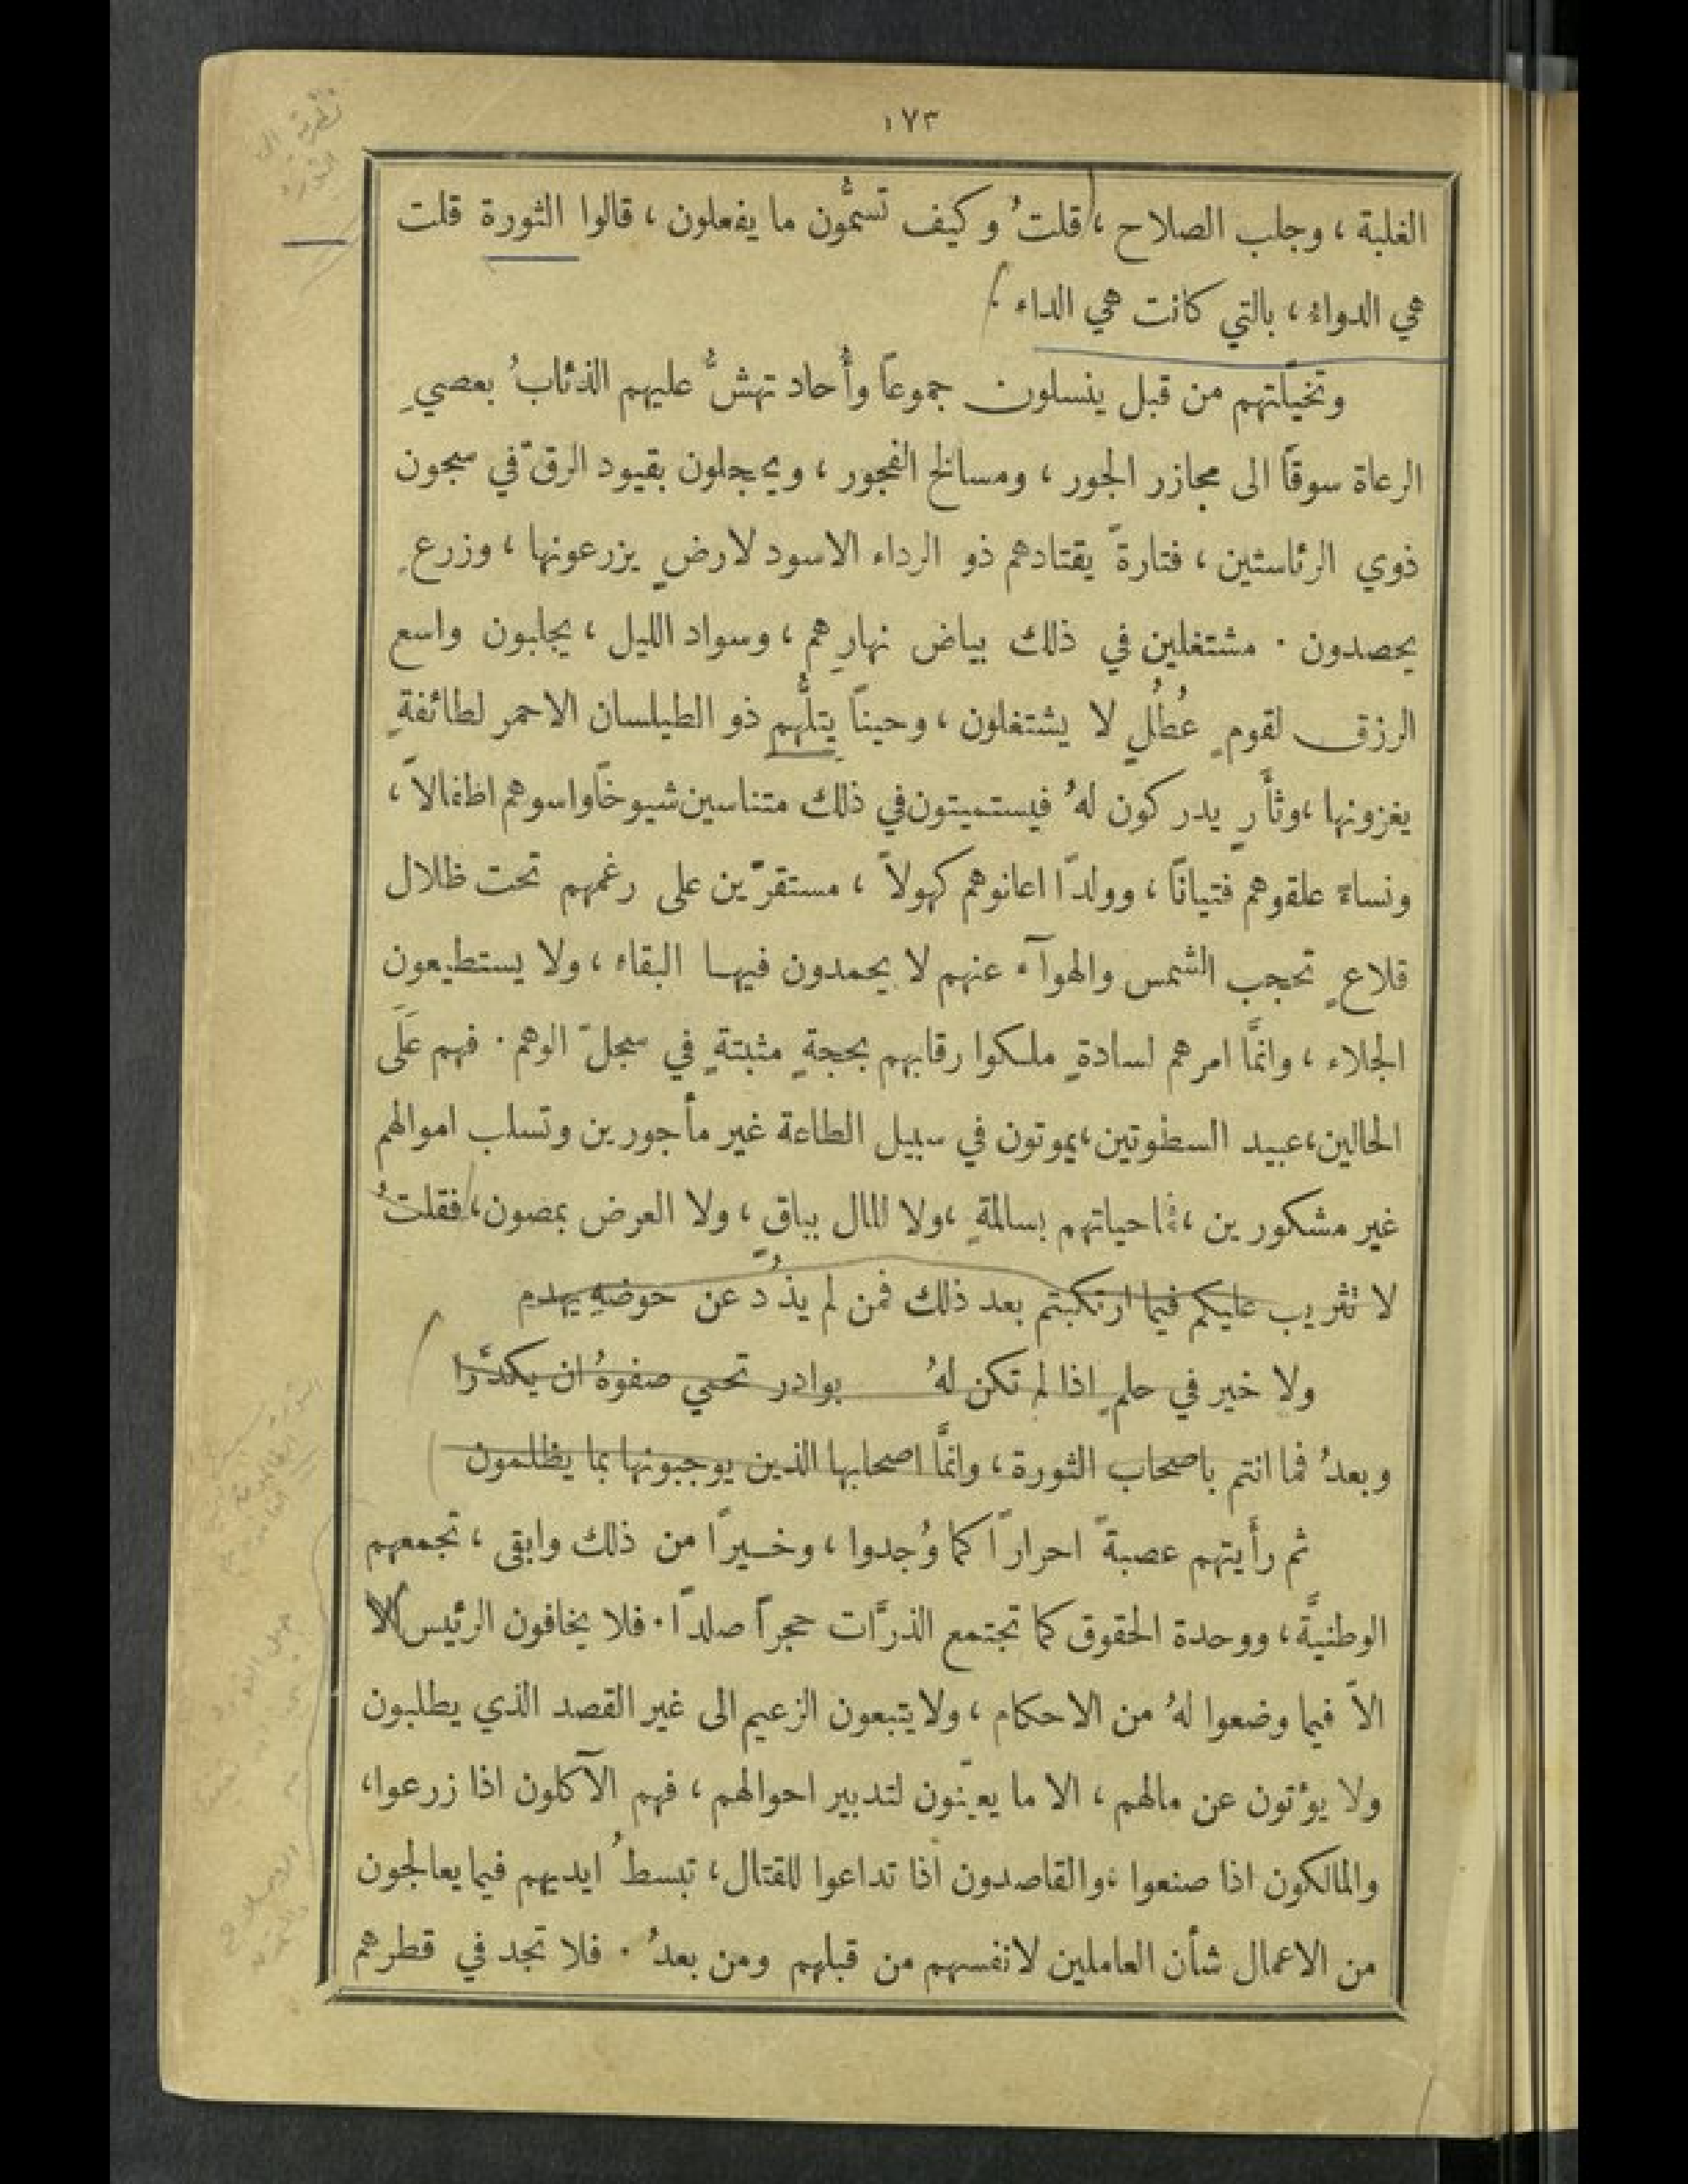 ١٧٣
الغلبة ، وجلب الصلاح ، قلتُ وكيف تسمُّون ما يفعلون ، قالوا الثورة قلت
هي الدواء ، بالتي كانت هي الداء .
وتخيَّلتهم من قبل ينسلون جموعاً وأُحاد تهشُّ عليهم الذئابُ بعصيِ
الرعاة سوقاً الى مجازر الجور ، ومسالخ الفجور ، ويحجلون بقيود الرقّ في سجون
ذوي الرئاستين ، فتارةً يقتادهم ذو الرداء الاسود لارضٍ يزرعونها ، وزرعٍ
يحصدون . مشتغلين في ذلك بياض نهارِهم ، وسواد الليل ، يجلبون واسع
الرزق لقومٍ عُطُلٍ لا يشتغلون ، وحيناً يتلُّهم ذو الطيلسان الاحمر لطائفةٍ
يغزونها ، وثأرٍ يدركون لهُ فيستميتون في ذلك متناسين شيوخاً واسوهم اطفالاً ،
ونساءً علقوهم فتياناً ، وولداً اعانوهم كهولاً ، مستقرّين على رغمهم تحت ظلال
قلاعٍ تحجب الشمس والهوآء عنهم لا يحمدون فيها البقاء ، ولا يستطيعون
الجلاء ، وانمَّا امرهم لسادةٍ ملكوا رقابهم بحجةٍ مثبتةٍ في سجلّ الوهم . فهم عَلَى
الحالين ، عبيد السطوتين ، يموتون في سبيل الطاعة غير مأجورين وتسلب اموالهم
غير مشكورين ، فما حياتهم بسالمةٍ ، ولا المال بباقٍ ، ولا العرض بمصون ، فقلتُ
لا تثريب عليكم فيما ارتكبتم بعد ذلك فمن لم يذُد عن حوضهِ يهدم
ولا خير في حلمٍ اذا لم تكن لهُ بوادر تحمي صفوهُ ان يكدَّرا
وبعدُ فما انتم باصحاب الثورة ، وانمَّا اصحابها الذين يوجبونها بما يظلمون
ثم رأَيتهم عصبةً احراراً كما وُجدوا ، وخيراً من ذلك وابقى ، تجمعهم
الوطنيَّة ، ووحدة الحقوق كما تجتمع الذرَّات حجراً صلداً . فلا يخافون الرئيس الا
الاّ فيما وضعوا لهُ من الاحكام ، ولا يتبعون الزعيم الى غير القصد الذي يطلبون
ولا يؤتون عن مالهم ، الا ما يعيّنون لتدبير احوالهم ، فهم الآكلون اذا زرعوا ،
والمالكون اذا صنعوا ، والقاصدون اذا تداعوا للقتال ، تبسطُ ايديهم فيما يعالجون
من الاعمال شأن العاملين لانفسهم من قبلهم ومن بعدُ . فلا تجد في قطرهم